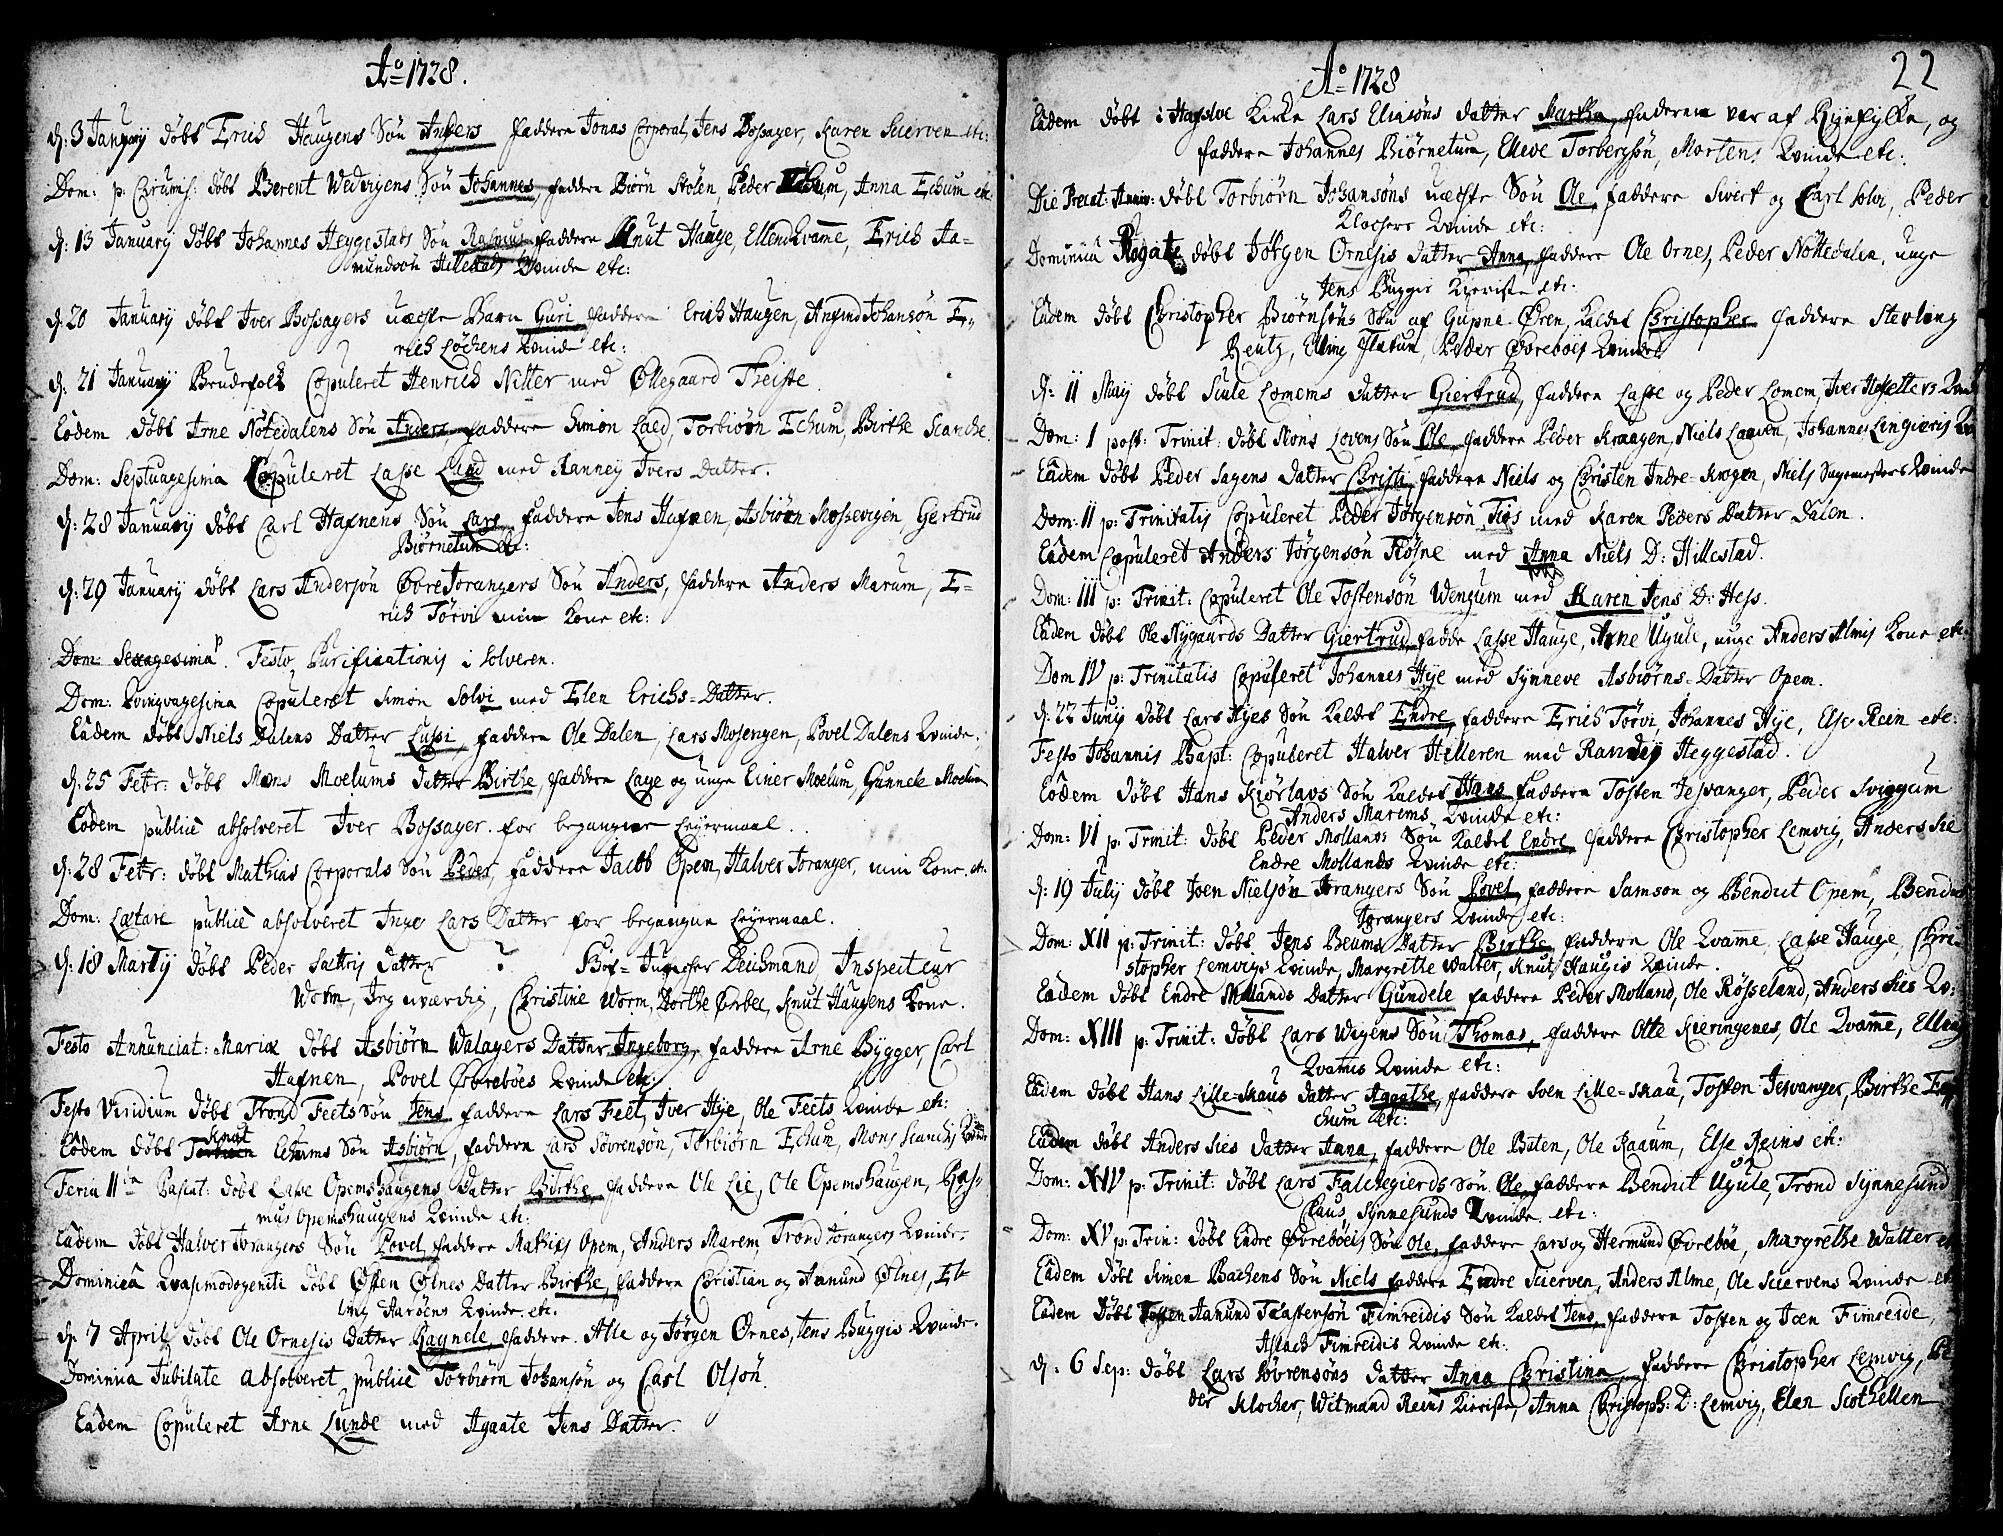 Ao 1728.
d: 3 January døbt Erich Haugens Søn Anders faddere Jonas Corporal, Jens Bossager, Karen Skierven etc:
Dom: p: døbt Berent Wedvigens Søn Johannes, faddere Biørn Stølen, Peder Echum, Anna Echum etc
d: 13 January døbt Johannes Heggestads Søn Rasmus faddere Knut Hauge, Ellend Qvame, Erich Aa=
mundsøn Hillestads Qvinde etc:
d: 20 January døbt Iver Bossagers uægte Barn Guri faddere Erich Haugen, Anfind Johansøn E=
rich Løchens Qvinde etc:
d: 21 January Brudefolk Copuleret Henrich Nitter med Ollegaard Theiste.
Eôdem døbt Arne Nøttedalens Søn Anders faddere Simon Laed, Torbiørn Echum, Birthe Scanche.
Dom: Septuagesima Copuleret Lasse Lund med Ranney Ivers Datter.
d: 28 January døbt Carl Hafnens Søn Lars faddere Jens Hafnen, Asbiørn Mossevigen, Gertrud
Biørnetun etc:
d: 29 January døbt Lars Andersøn Øvre Torangers Søn Anders, faddere Anders Marum, E=
rich Tørvi min Kone etc:
Dom: Sexagesima. Festo Purificationis i Solveren.
Dom: Qvinqvagesima Copuleret Simon Solvi med Elen Erichs=Datter.
Eâdem døbt Niels Dalens Datter Lussi, faddere Ole Dalen, Lars Mosengen, Povel Dalens Qvinde.
d: 25 Febr: døbt Mons Moelums datter Birthe, faddere Lage og unge Einer Moelum, Gunnele Moelum
Eodem publicè absolveret Iver Bossager for begangne Leyermaal.
d: 28 Febr: døbt Mathias Corporals Søn Peder, faddere Jacob Opem, Halver Toranger, min Kone etc.
Dom: Lætare publicè absolveret Inge Lars Datter for begangne Leyermaal.
d: 18 Marty døbt Peder Sættris Datter ? Deichmand, Inspecteur
Worm, Christine Worm, Dorthe, Knut Haugens Kone.
Festo Annunciat: Mariæ døbt Asbiørn Walagers Datter Ingeborg, faddere Arne Bygger, Carl
Hafnen, Povel Øvrebøes Qvinde etc:
Festo Viridium døbt Trond Feets Søn Jens faddere Lars Feet, Iver Hye, Ole Feets Qvinde etc:
Knut
Eôdem døbt Torbiørn Echums Søn Asbiørn, faddere Lars Sørensøn, Torbiørn Echum, Mons Scanches Qvinde
Feria IIda Pascat: døbt Lasse Opemshaugens Datter Birthe, faddere Ole Lie, Ole Opemshaugen, Ras=
mus Opemshaugens Qvinde etc:
Eâdem døbt Halver Torangers Søn Povel, faddere Mathias Opem, Anders Marem, Trond Torangers Qvinde.
Dominicâ Qvasimodogeniti døbt Offen Ølnes Datter Birthe, faddere Christian og Amund Ølnes, El=
ling Aarøens Qvinde etc.
d: 7 April døbt Ole Ornesis Datter Ragnele, faddere Alle og Jørgen Ornes, Jens Buggis Qvinde.
Dominica Jubilate absolveret publicè Torbiørn Johansøn og Carl Olsøn.
Eâdem Copuleret Arne Lunde med Agaate Jens Datter.
Ao 1728
22
Eâdem døbt i Hafsloe Kirke Lars Eliasøns datter Martha, faderen var af Ryefylke, og
faddere Johannes Biørnetun, Elleve Torbergsøn, Mortens Qvinde etc:
Die Precat: Anniv: døbt Torbiørn Johansøns uægte Søn Ole, faddere Sivert og Carl Solvi, Peder
Klochers Qvinde etc:
Dominica Rogate døbt Jørgen Ornesis datter Anna, faddere Ole Ornes, Peder Nøttedalen, unge
Jens Bugges Kieriste etc:
Eâdem døbt Christopher Biørnsøns Søn af Gupne-Øren, kaldet Christopher faddere Sterling
Rentz, Elling Flatum, Peder Øvrebøes Qvinde
d: 11 Maij døbt Siule Lomems datter Giertrud, faddere Lasse og Peder Lomem, Iver Hosetters Qvinde
Dom: I post: Trinit: døbt Mons Lovens Søn Ole, faddere Peder Kraagen, Niels Lauen, Johannes Lingieris Qv
Eâdem døbt Peder Sagens datter Christi, faddere Niels og Christen Indre-Krogen, Niels Sagemesters Qvinde
Dom: II p: Trinitatis Copuleret Peder Jørgensøn med Karen Peders Datter Dalen.
Eâdem Copuleret Anders Jørgensøn med Anna Niels D: Hillestad.
Dom: III p: Trinit: Copuleret Ole Tostensøn Wengum med Karen Jens D: Hess.
Eâdem døbt Ole Nygaards Datter Giertrud, fadde Lasse Hauge, Arne Ugule, unge Anders Almis Kone etc.
Dom IV p: Trinitatis Copuleret Johannes Hye med Synneve Asbiørns=Datter Opem.
d: 22 Juny døbt Lars Hyes Søn kaldet Endre, faddere Erich Tørvi, Johannes Hye, Else Rein etc:
Festo Johannis Bapt: Copuleret Halver Hilleren med Randey Heggestad.
Eôdem døbt Hans Kiørlaus Søn kaldet Hans faddere Tosten Jesvanger, Peder Sviggum
Anders Marems Qvinde etc:
Dom: VI p: Trinit: døbt Peder Mollands Søn kaldet Endre, faddere Christopher Lemvig, Anders Sie
Endre Mollands Qvinde etc:
d: 19 July døbt Joen Nielsøn Torangers Søn Povel, faddere Samson og Bendict Opem, Bendict
Torangers Qvinde etc:
Dom: XII p: Trinit: døbt Jens Beums Datter Birthe, faddere Ole Qvame, Lasse Hauge, Chri=
stopher Lemvigs Qvinde, Margrethe Walter, Knut Haugis Qvinde.
Eâdem døbt Endre Mollands datter Gundele faddere Peder Molland, Ole Røsseland, Anders Sies Qv:
Dom: XIII p: Trinit: døbt Lars Wigens Søn Thomas, faddere Olle Kieringenes, Ole Qvame, Elling
Qvamis Qvinde etc:
Eâdem døbt Hans Lille-Skaus datter Agathe, faddere Sven Lille-Skau, Tosten Jesvanger, Birthe E
chum etc:
Eâdem døbt Anders Sies datter Anna, faddere Ole Buten, Ole Raaum, Else Reins etc:
Dom: XIV p: Trinit: døbt Lars Falchegierds Søn Ole, faddere Bendict Ugule, Trond Synnesund
Claus Synnesunds Qvinde etc:
Dom: XV p: Trin: døbt Endre Øvrebøeis Søn Ole, faddere Lars og Hermund Øvrebøe, Margrethe Walter etc
Eâdem døbt Simen Bachens Søn Niels faddere Endre Scierven, Anders Alme, Ole Sciervens Qvinde etc
Eâdem døbt Tosten Aamund Fimreidis Søn kaldet Jens, faddere Tosten og Joen Fimreide,
Aslach Fimreidis Qvinde etc.
d: 6 Sep: døbt Lars Sørensøns datter Anna Christina, faddere Christopher Lemvig, Pe
der Klocher, Witmand Reins Kieriste, Anna Christoph: D: Lemvig, Elen